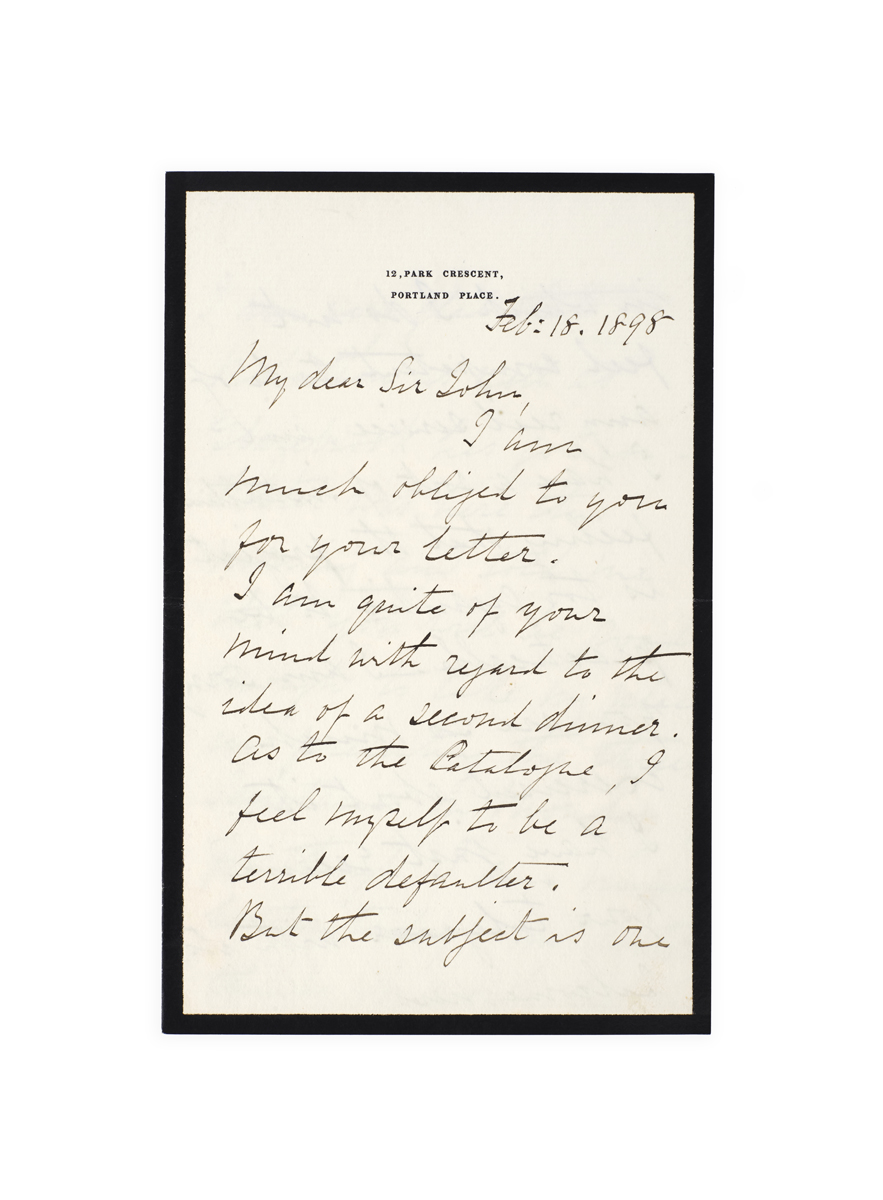 12, PARK CRESCENT,
PORTLAND PLACE.
Feb: 18. 1898
My dear Sir John,
I am
much obliged to you
for your letter.
I am quite of your
mind with regard to the
idea of a second dinner.
As to the Catalogue, I
feel myself to be a
terrible defaulter.
But the subject is one